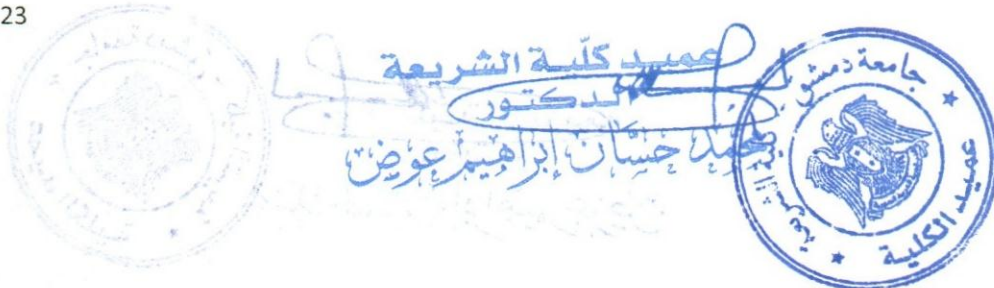 23
عميد كلّية الشريعة
الدكتور
محمد حسَّان إبراهيم عوض
جامعة دمشق
كلية الشريعة
عميد الكلية